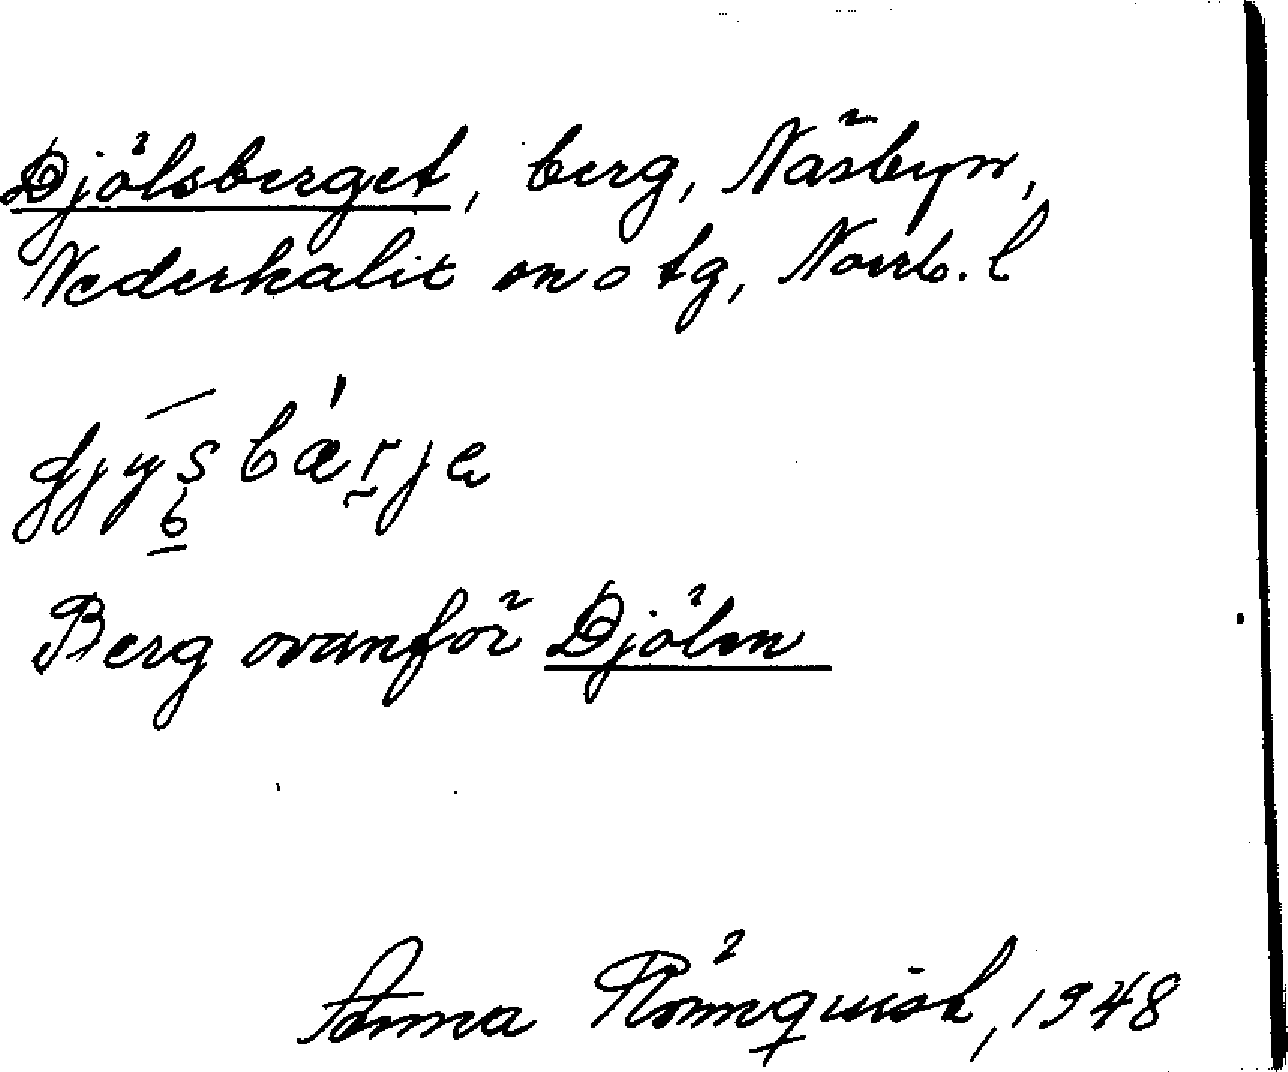 Djölsberget, berg, Näsbyn,
Nederkalix sn o tg, Norrb. l
Berg ovanför Djöln
Anna Rönnquist, 1948